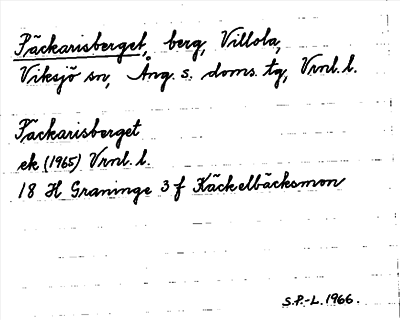 Päckarisberget, berg, Villola,
Viksjö sn, Ång. s. doms. tg, Vrnl. l.
Päckarisberget
ek (1965) Vrnl. l.
18 H Graninge 3 f Käckelbäcksmon
S.P.-L. 1966.